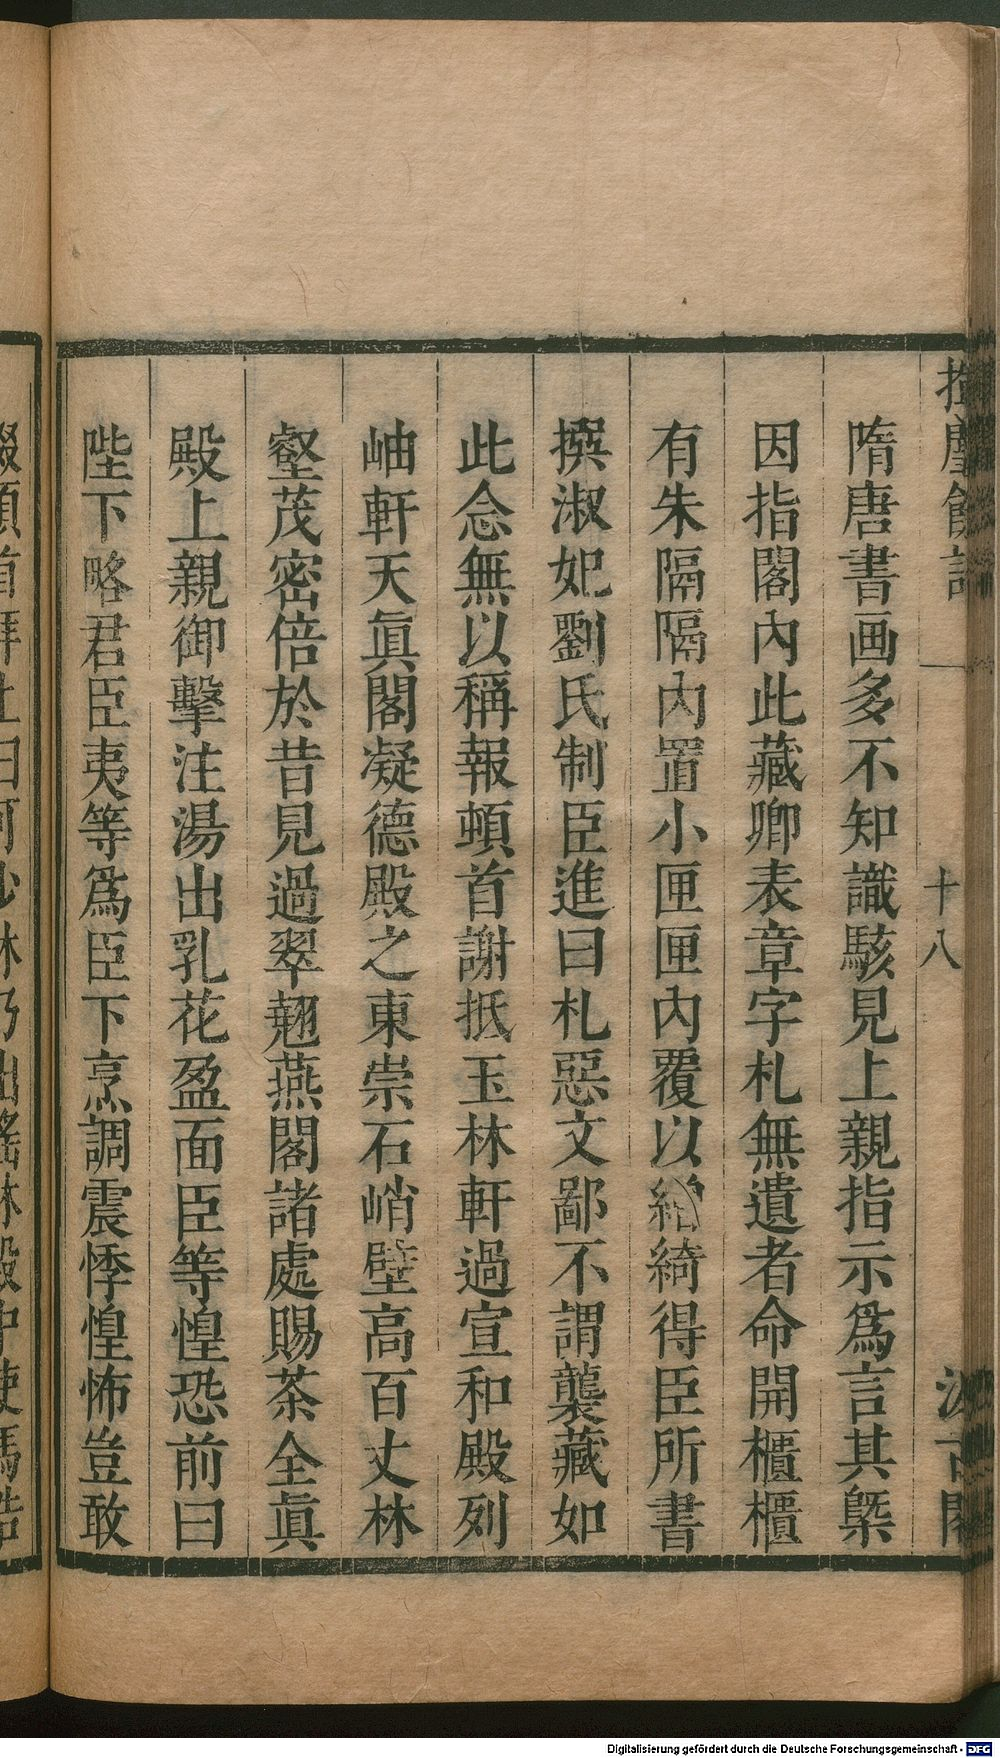 揮麈餘話
一
十八
汲古閣
隋唐書画多不知識駭見上親指示爲言其槩
因指閣內此藏卿表章字札無遺者命開櫃櫃
有朱隔隔內置小匣匣內覆以繒綺得臣所書
撰淑妃劉氏制臣進曰札惡文鄙不謂襲藏如
此念無以稱報頓首謝抵玉林軒過宣和殿列
岫軒天眞閣凝德殿之東崇石峭壁高百丈林
壑茂密倍於昔見過翠翹燕閣諸處賜茶全眞
殿上親御擊注湯出乳花盈面臣等惶恐前曰
陛下略君臣夷等爲臣下烹調震悸惶怖豈敢
Digitalisierung gefördert durch die Deutsche Forschungsgemeinschaft - DFG